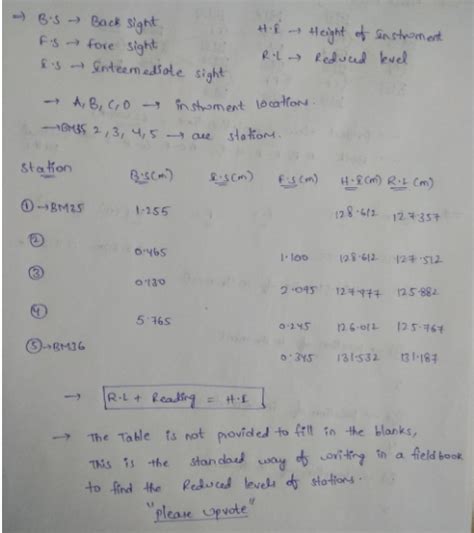 → B.S → Back sight   H.I → Height of instrument
F.S → Fore sight   R.L → Reduced level
I.S → Intermediate sight
→ A, B, C, D → instrument locations.
→ BM35 2, 3, 4, 5 → are stations.
Station   B.S(m)   I.S(m)   F.S(m)   H.I(m)   R.L(m)
① → BM25   1.255   128.612   127.357
②
0.465   1.100   128.612   127.512
③
0.130   2.095   127.977   125.882
④
5.765   0.245   126.012   125.767
⑤ → BM36
0.345   131.532   131.187
→ R.L + Reading = H.I
→ The Table is not provided to fill in the blanks,
This is the standard way of writing in a field book
to find the Reduced levels of stations.
"Please upvote"